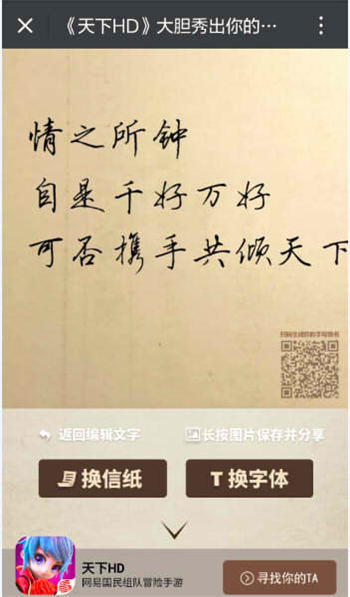 《天下HD》大胆秀出你的…
情之所钟
自是千好万好
可否携手共倾天下
扫码生成你的手写情书
返回编辑文字
长按图片保存并分享
换信纸
T 换字体
天下HD
网易国民组队冒险手游
寻找你的TA